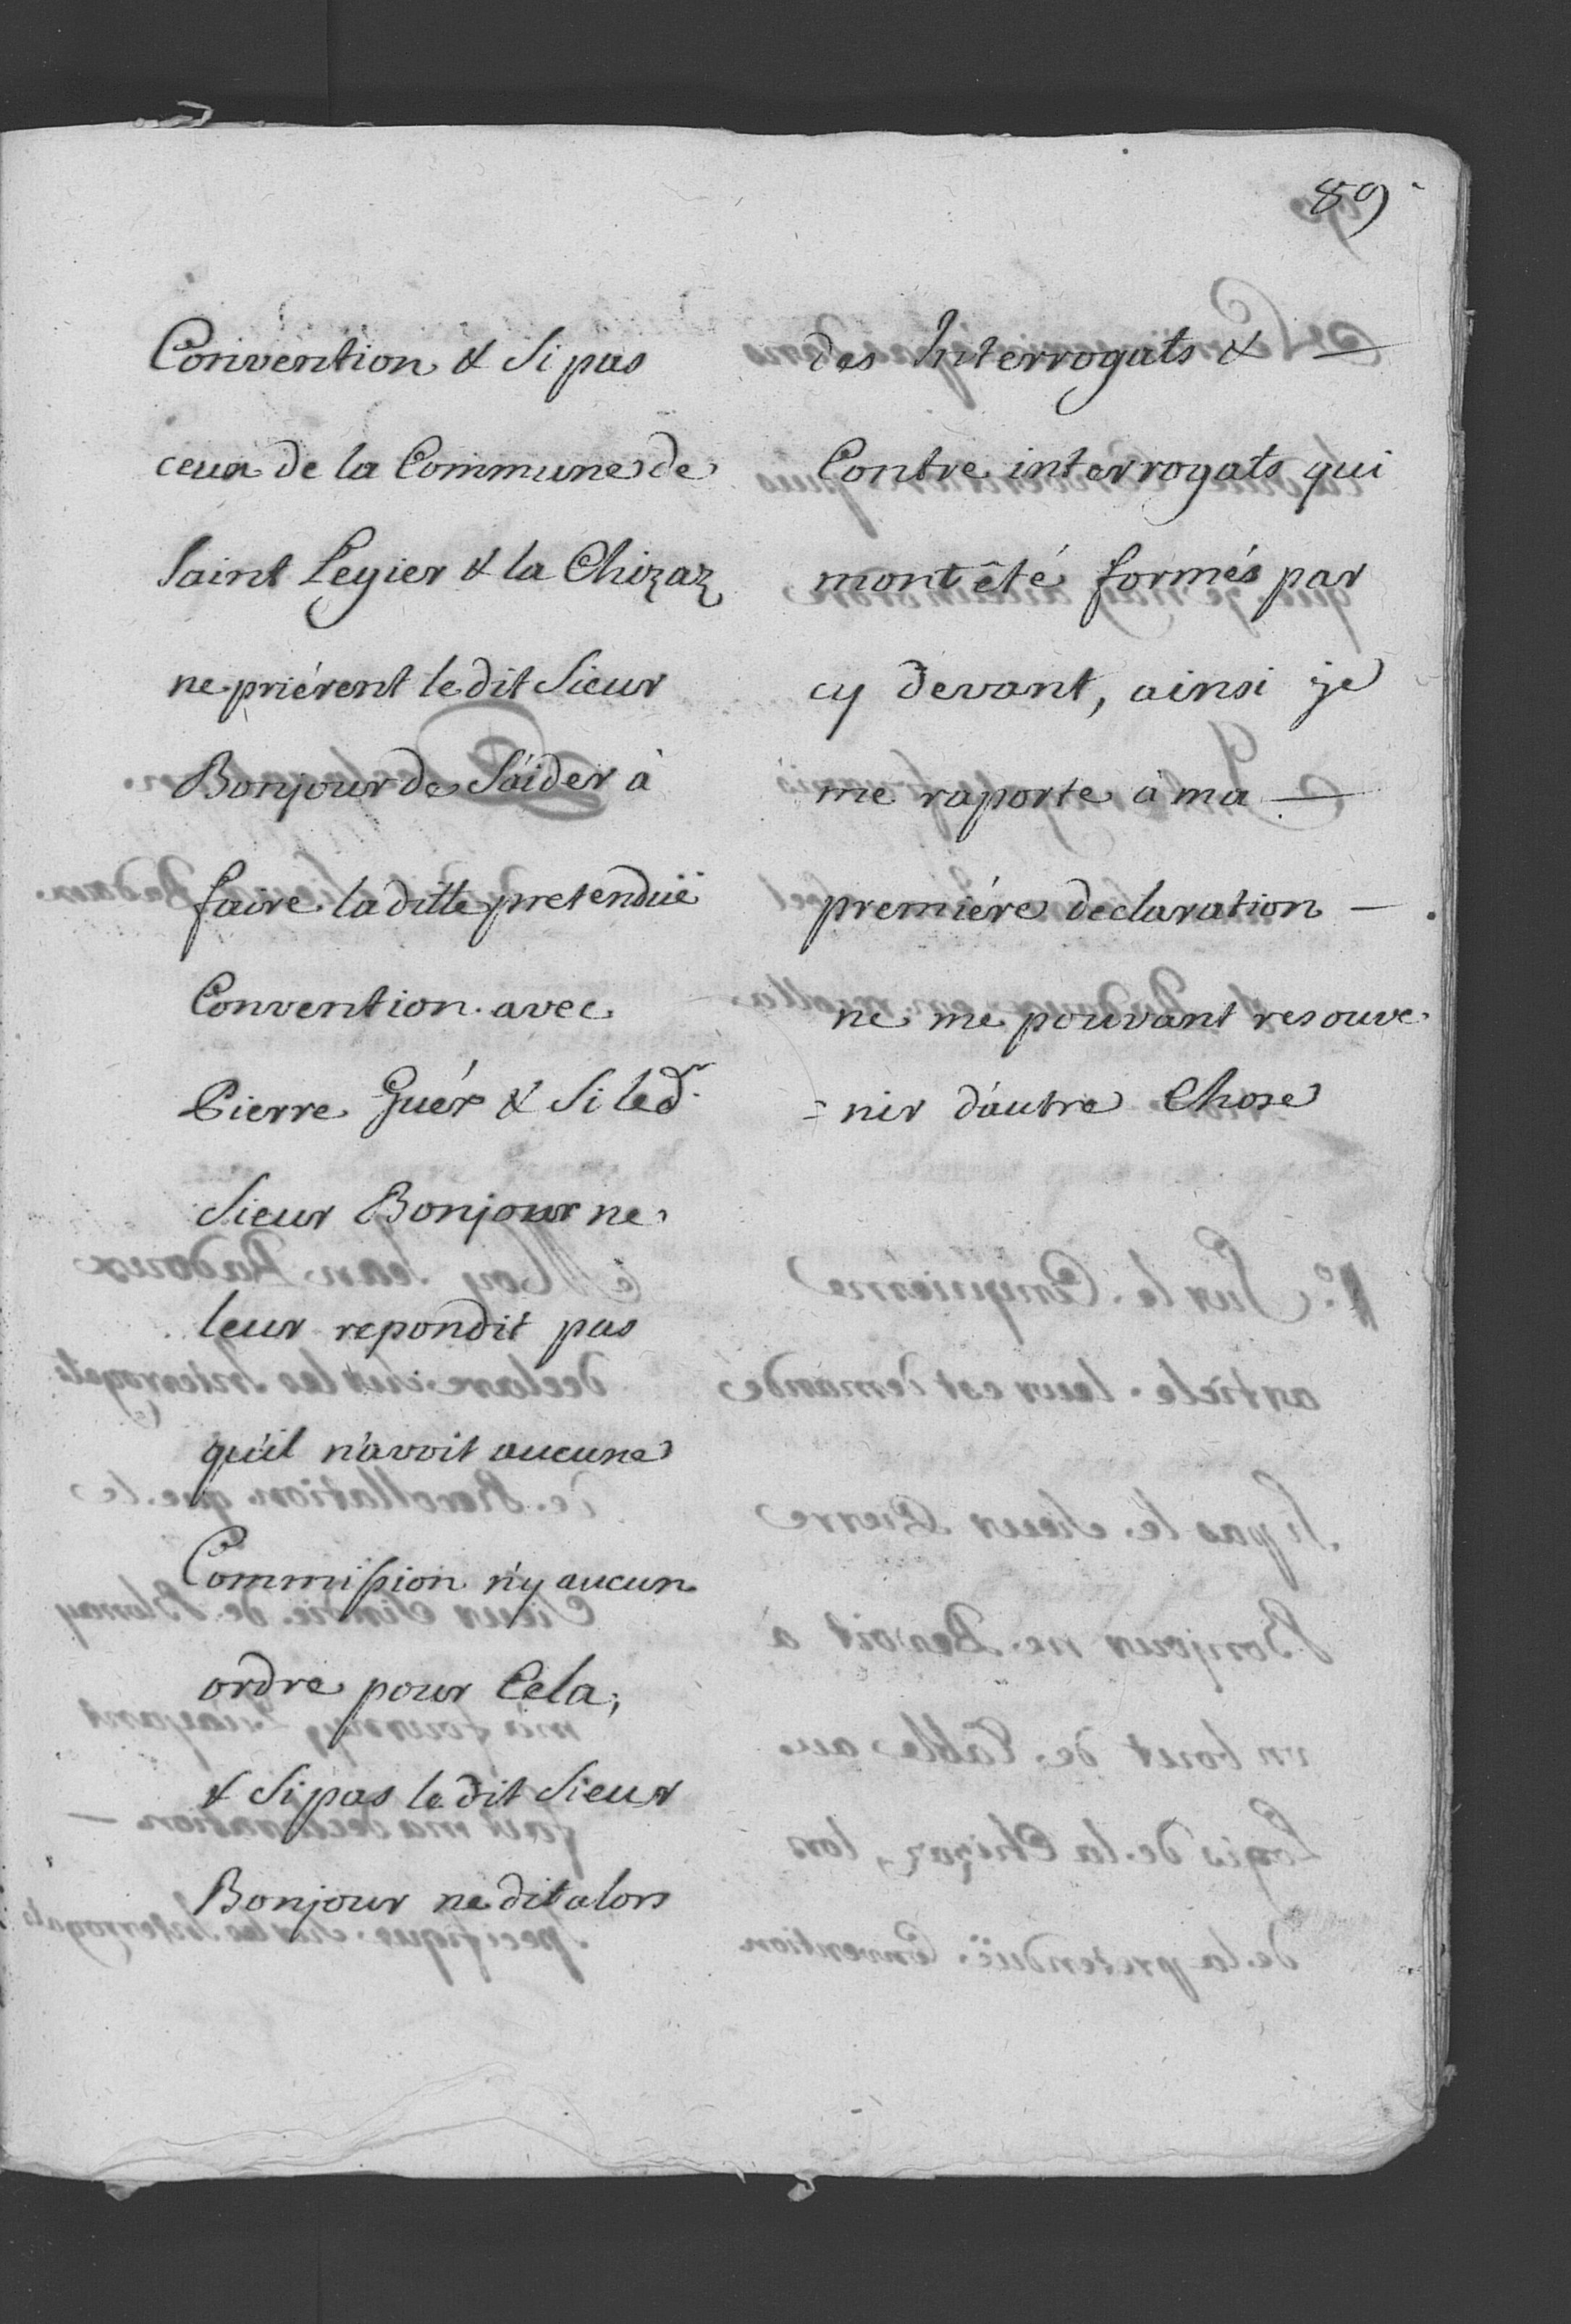 89
Convention & Si pas
ceux de la Commune de
Saint Legier & la Chizaz
ne priérent le dit Sieur
Bonjour de S'aider à
faire la ditte pretenduë
Convention avec
Pierre Guéx & Si led.r
Sieur Bonjour ne
leur repondit pas
qu'il n'avoit aucune
Commission n'y aucun
ordre pour Cela;
& Si pas le dit Sieur
Bonjour ne dit alors
des Interrogats & —
Contre interrogats qui
mont êté formés par
cy devant, ainsi je
me raporte à ma —
premiére declaration —
ne me pouvant resouve
= nir d'autre Chose